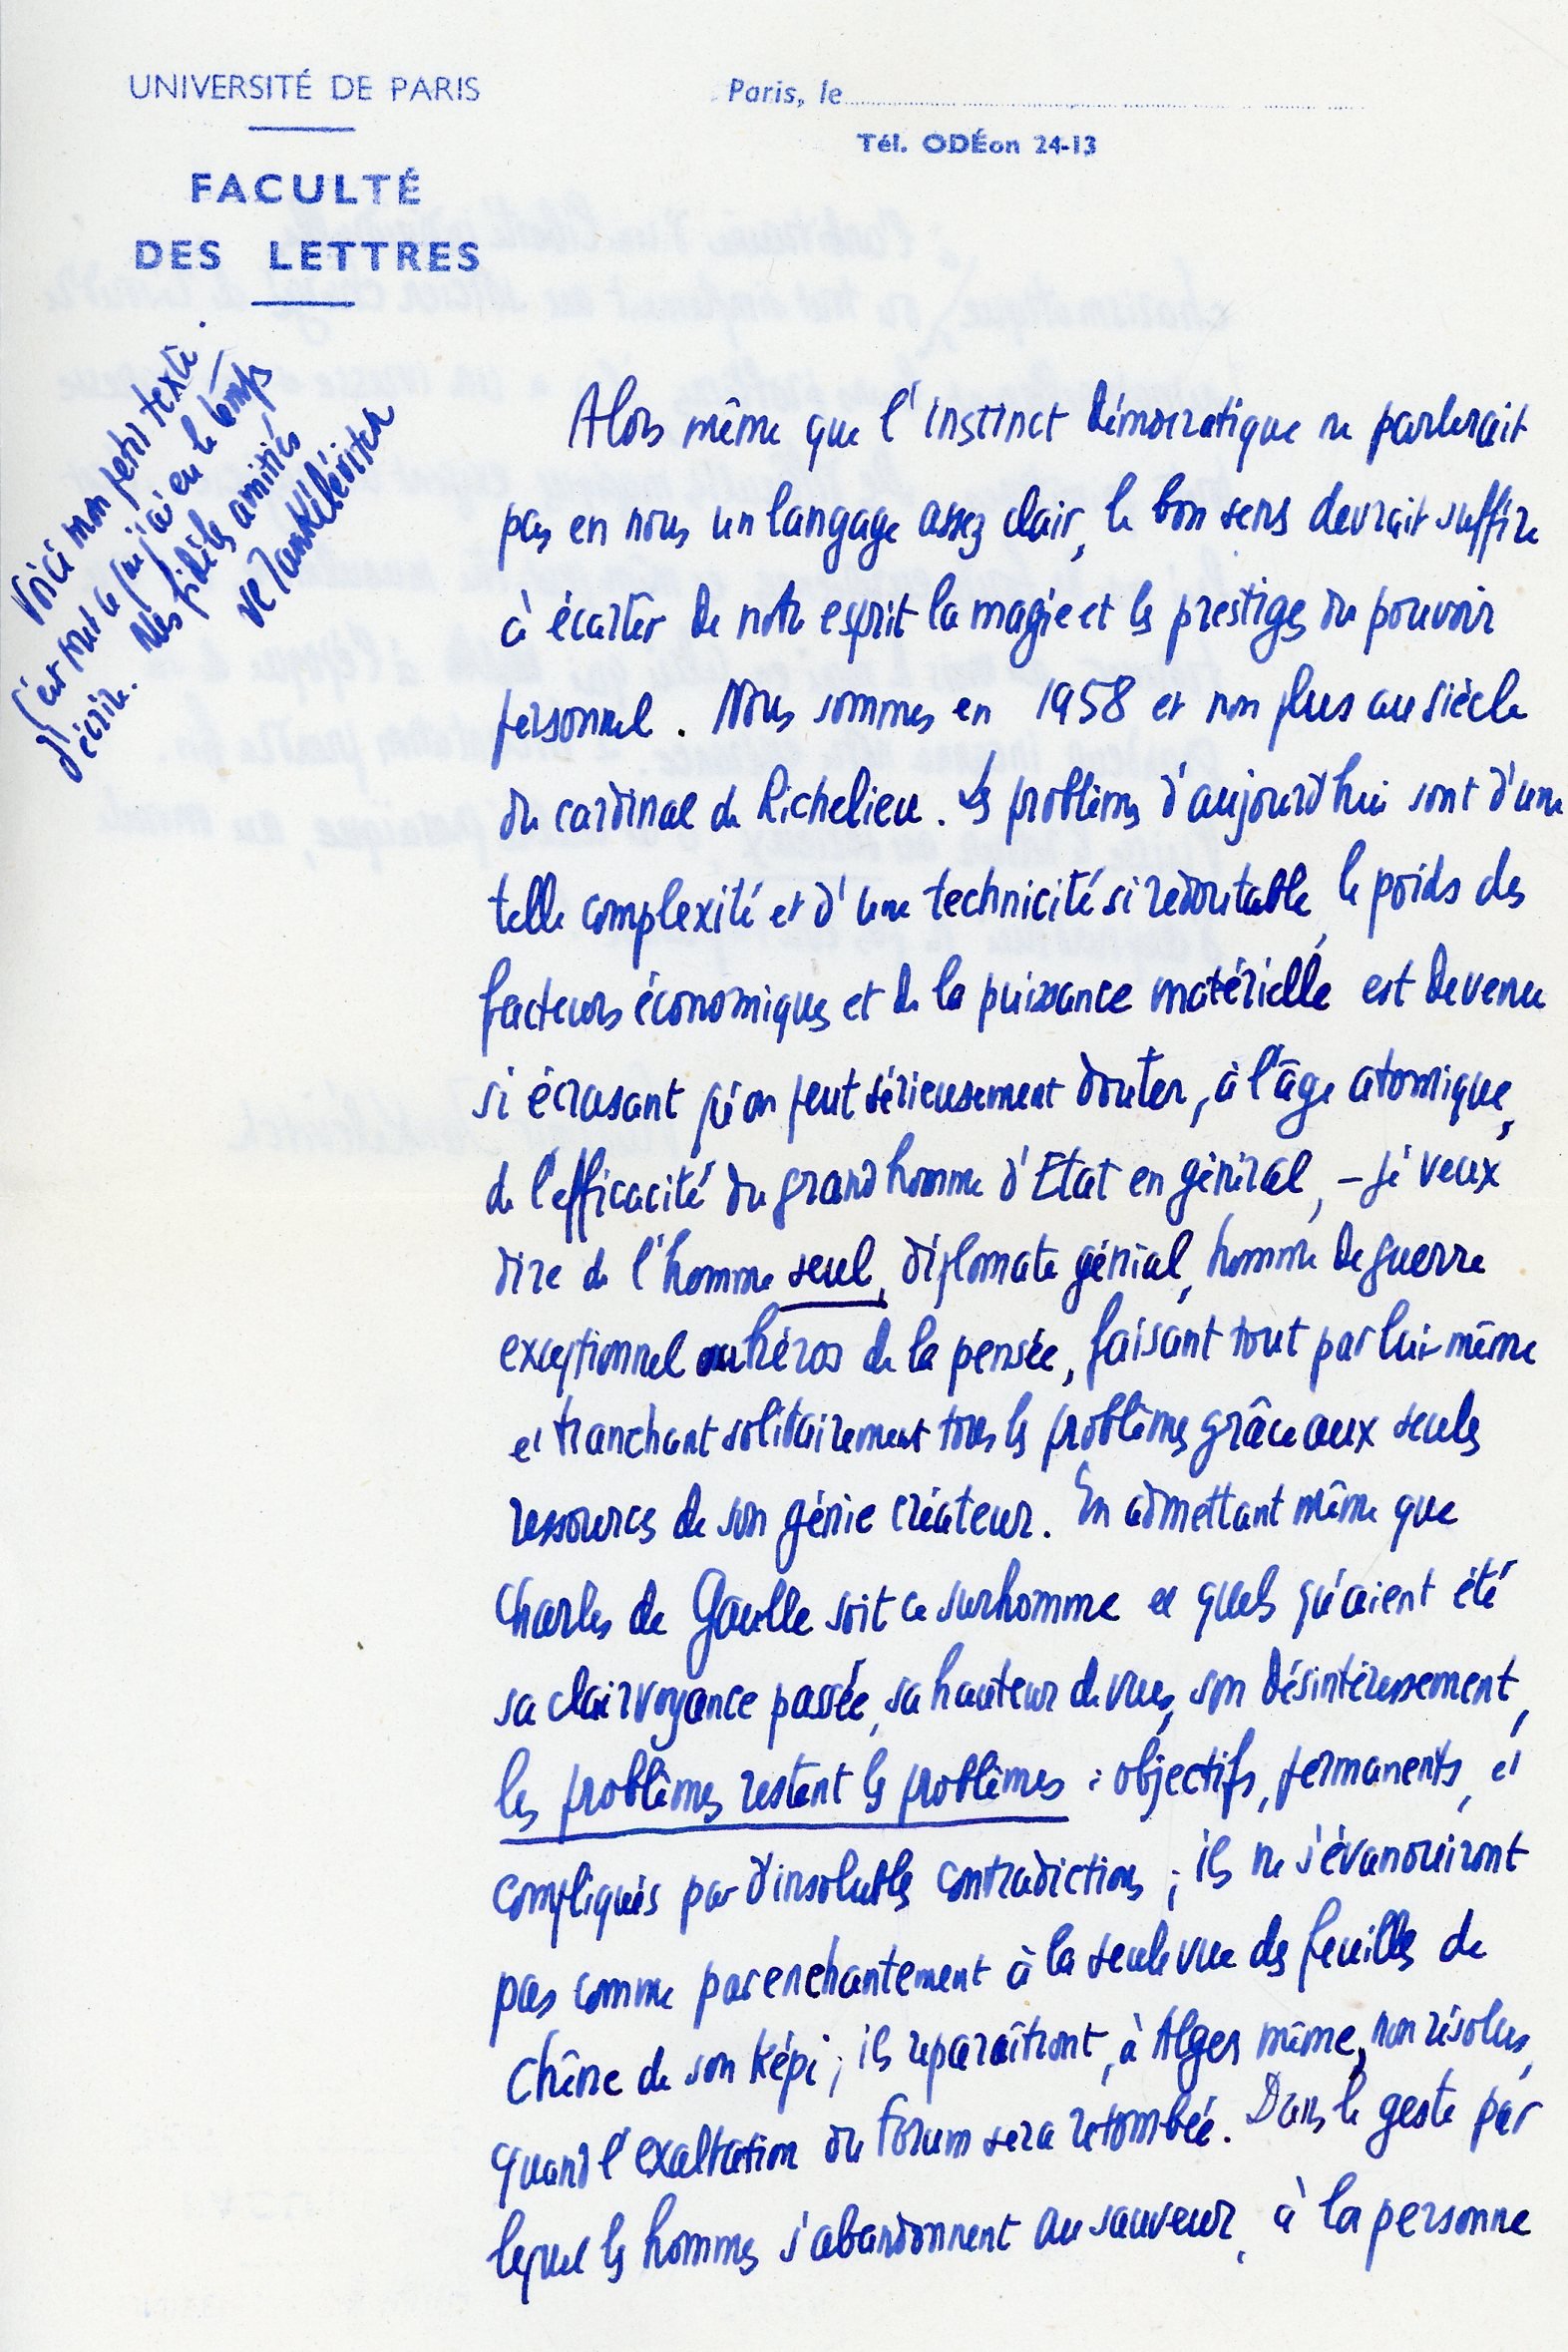 UNIVERSITÉ DE PARIS
FACULTÉ
DES LETTRES
Paris, le
Tél. ODÉon 24-13
Voici mon petit texte.
C'est tout ce que j'ai eu le temps
d'écrire. Mes fidèles amitiés
Vl Jankélévitch
Alors même que l'instinct démocratique ne parlerait
pas en nous un langage assez clair, le bon sens devrait suffire
à écarter de notre esprit la magie et les prestiges du pouvoir
personnel. Nous sommes en 1958 et non plus au siècle
du cardinal de Richelieu. Les problèmes d'aujourd'hui sont d'une
telle complexité et d'une technicité si redoutable, le poids des
facteurs économiques et de la puissance matérielle est devenu
si écrasant qu'on peut sérieusement douter, à l'âge atomique,
de l'efficacité du grand homme d'Etat en général, – je veux
dire de l'homme seul, diplomate génial, homme de guerre
exceptionnel ou héros de la pensée, faisant tout par lui-même
et tranchant solitairement tous les problèmes grâce aux seules
ressources de son génie créateur. En admettant même que
Charles de Gaulle soit ce surhomme et quels qu'aient été
sa clairvoyance passée, sa hauteur de vues, son désintéressement,
les problèmes restent les problèmes : objectifs, permanents, et
compliqués par d'insolubles contradictions ; ils ne s'évanouiront
pas comme par enchantement à la seule vue des feuilles de
chêne de son képi ; ils reparaîtront, à Alger même, non résolus,
quand l'exaltation du forum sera retombée. Dans le geste par
lequel les hommes s'abandonnent au sauveur, à la personne